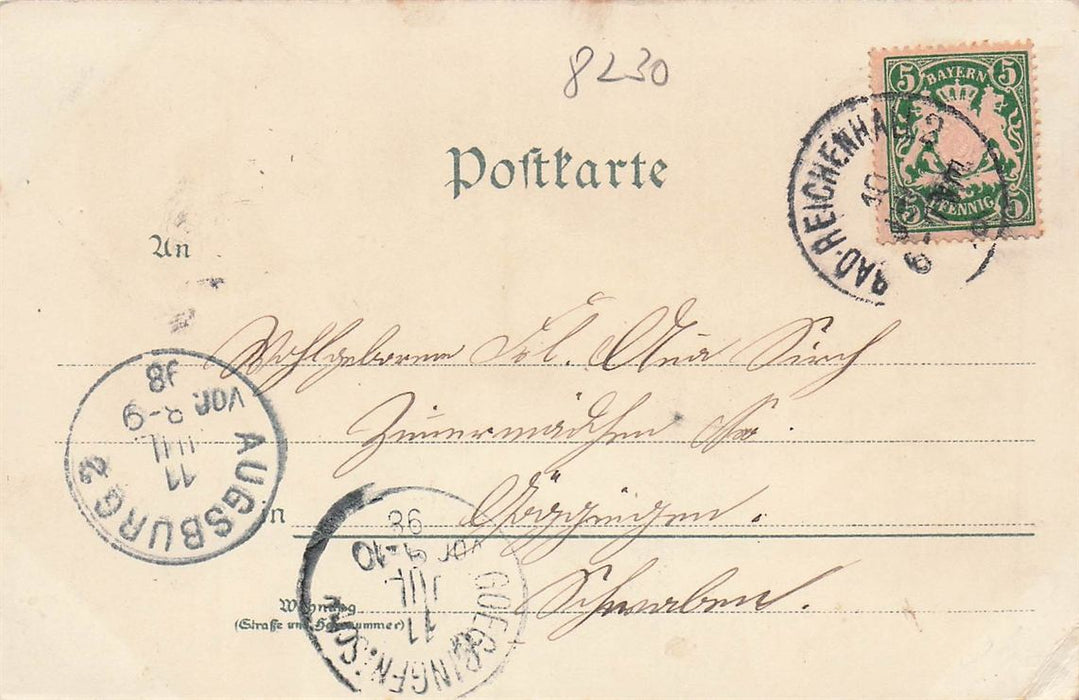 8230
5 BAYERN 5
5 PFENNIG 5
BAD-REICHENHALL 2
10
Postkarte
An
Wohlgeboren Frl. Sirch
Zimmermädchen
in Göggingen.
Schwaben.
Wohnung
(Straße und Hausnummer)
AUGSBURG 2
11
JUL
VOR. 8-9
98
GOEGGINGEN
11
JUL
VOR 9-10
98